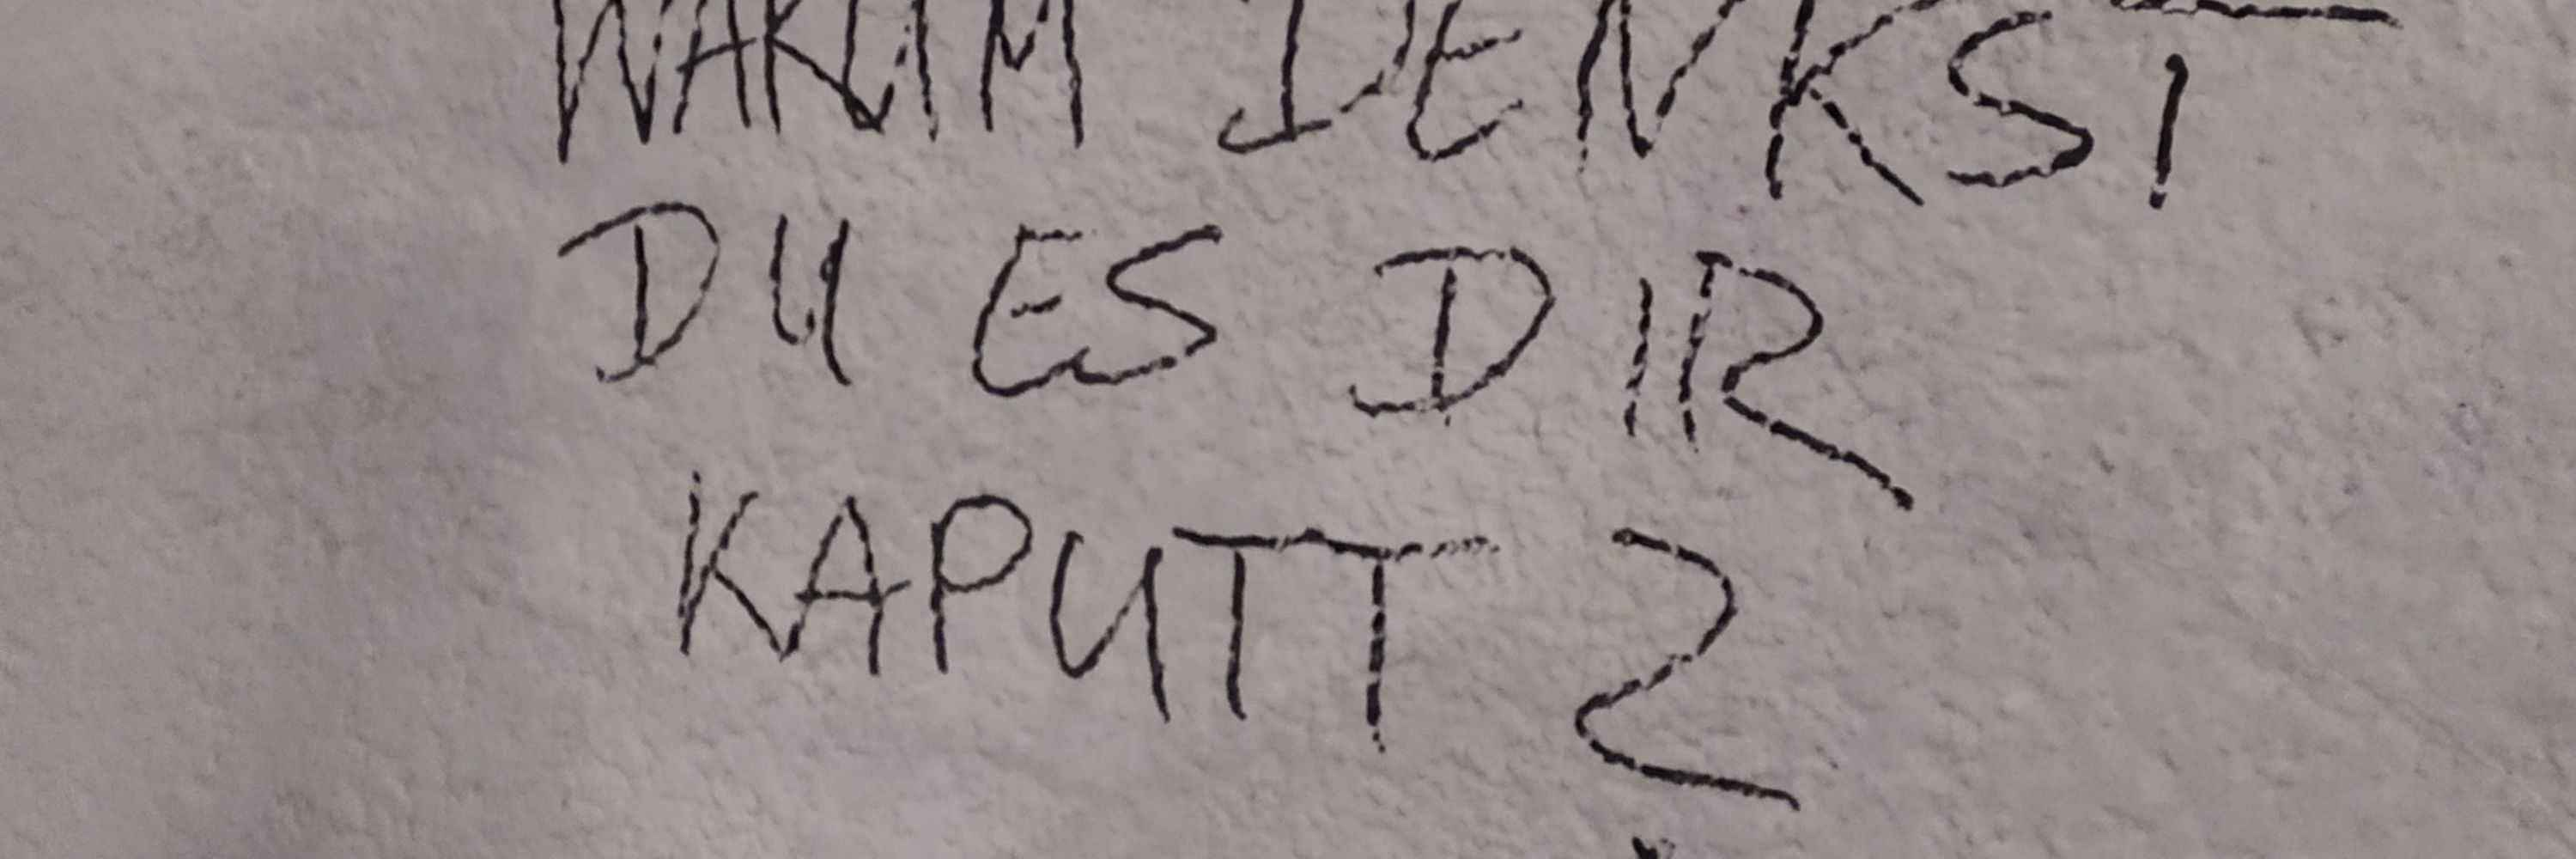 WARUM DENKST
DU ES DIR
KAPUTT?